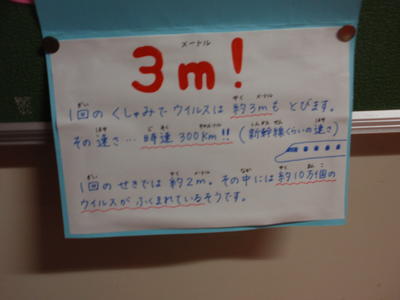 メートル
3m!
1回のくしゃみでウイルスは約3mもとびます。
その速さ…時速300km!!(新幹線くらいの速さ)
1回のせきでは約2m。その中には約10万個の
ウイルスがふくまれているそうです。